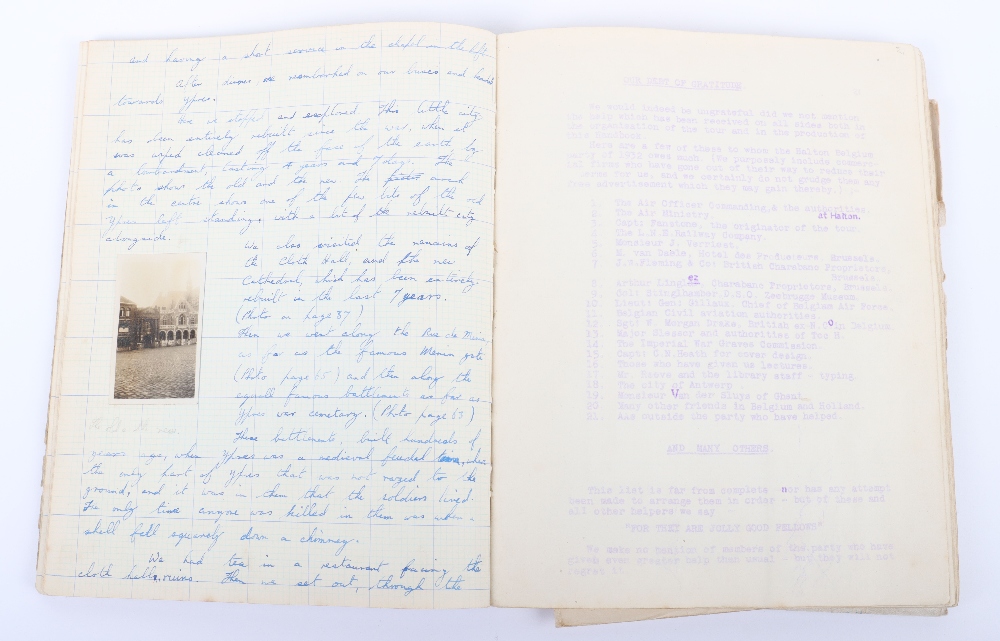 and having a short service in the chapel on the left.
After dinner we reembarked on our buses and headed
towards Ypres.
Here we stopped and explored. This little city
has been entirely rebuilt since the war, when it
was wiped cleaned off the face of the earth by
a bombardment, lasting 4 years and 7 days. The
photo shows the old and the new. The
in the centre shows one of the few bits of the old
Ypres left standing, with a bit of the rebuilt city
alongside.
We also visited the remains of
the Cloth Hall, and the new
Cathedral, which has been entirely
rebuilt in the last 7 years.
(Photo on page 87)
Then we went along the Rue de Menin
as far as the famous Menin gate
(Photo page 65) and then along the
equally famous battlements as far as
Ypres war cemetary. (Photo page 63)
These battlements, built hundreds of
years ago, when Ypres was a medieval feudal town, were
the only part of Ypres that was not razed to the
ground, and it was in them that the soldiers lived.
The only time anyone was killed in them was when a
shell fell squarely down a chimney.
We had tea in a restaurant facing the
cloth halls ruins. Then we set out, through the
OUR DEBT OF GRATITUDE
We would indeed be ungrateful did we not mention
the help which has been received on all sides both in
the organisation of the tour and in the production of
Here are a few of them to whom the Halton Belgian
party of 1932 owes much. (We purposely include the
firms who have gone out of their way to reduce their
terms for us, and we certainly do not grudge them any
free advertisement which they may gain thereby.)
1. The Air Officer Commanding & the authorities at Halton.
2. The Air Ministry.
3. Capt: Fanstone, the originator of the tour.
4. The L.N.E.Railway Company.
5. Monsieur J. Verriest.
6 M. van Damle, Hotel des Producteurs Brussels.
7 J.B.Fleming & Co: British Charabanc Proprietors, Brussels.
8. Arthur Linglez, Charabanc Proprietors, Brussels.
9. Capt Stinglhamber C.M.G. Zeebrugge Museum.
10 Lieut Genl Gillieaux, Chief of Belgian Air Force.
11 Belgian Civil aviation authorities
12 Sgt: V. Morgan Drake, British ex N.C.O in Belgium
13 Major Barry and authorities of Toc H.
14 The Imperial War Graves Commission.
15. Capt: C.N.Heath for cover design.
16. Those who have given us lectures.
17 Mr. Reeve and the library staff - typing.
18. The city of Antwerp
19. Monsieur Van der Kluys of Ghent.
20 Many other friends in Belgium and Holland.
21. Those outside the party who have helped.
AND MANY OTHERS.
This list is far from complete nor has any attempt
been made to arrange them in order - but of these and
all other helpers we say
"FOR THEY ARE JOLLY GOOD FELLOWS"
We make no mention of members of the party who have
given even greater help than usual - they will not
regret it